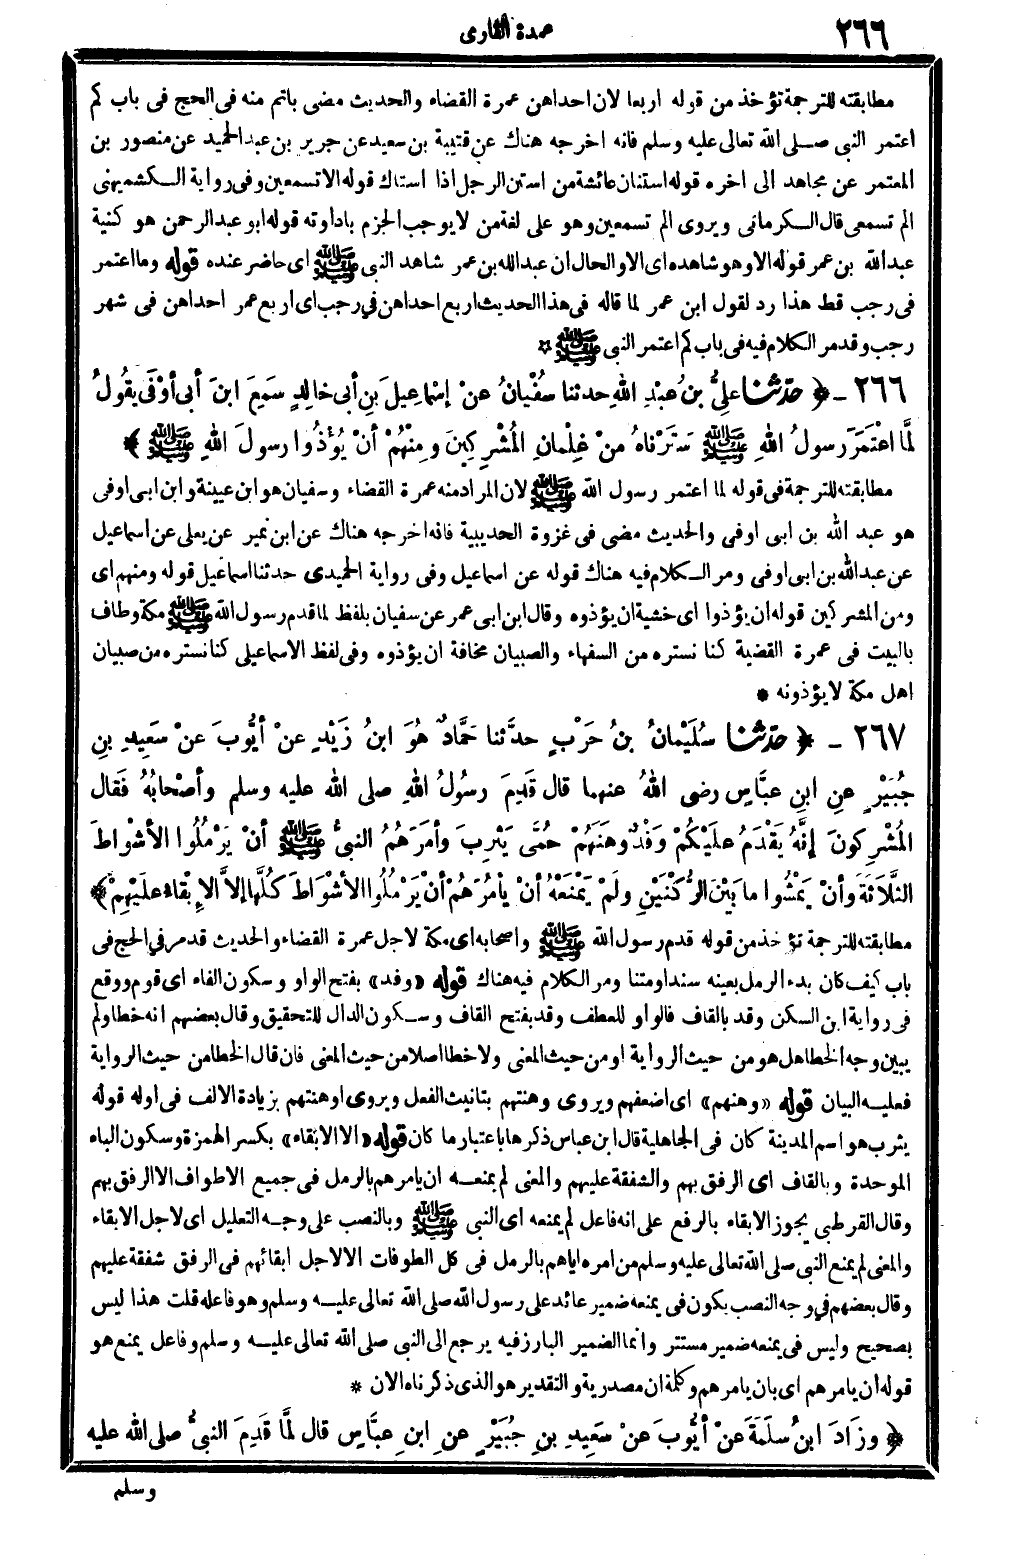 ٢٦٦
عمدة القارى
مطابقته للترجمة تؤخذ من قوله اربعا لان احداهن عمرة القضاء والحديث مضى باتم منه فى الحج فى باب كم
اعتمر النبى صلى الله تعالى عليه وسلم فانه اخرجه هناك عن قتيبة بن سعيد عن جرير بن عبد الحميد عن منصور بن
المعتمر عن مجاهد الى اخره قوله استنان عائشة من استن الرجل اذا استاك قوله الا تسمعين وفى رواية الكشميهنى
الم تسمعى قال الكرمانى ويروى الم تسمعين وهو على لغة من لا يوجب الجزم باداوته قوله ابو عبد الرحمن هو كنية
عبد الله بن عمر قوله الا وهو شاهده اى الا والحال ان عبد الله بن عمر شاهد النبى ﷺ اى حاضر عنده قوله وما اعتمر
فى رجب قط هذا رد لقول ابن عمر لما قاله فى هذا الحديث اربع احداهن في رجب اى اربع عمر احداهن فى شهر
رجب وقد مر الكلام فيه فى باب كم اعتمر النبى ﷺ ٭
٢٦٦ ـ ﴿ حدّثنا عليُّ بنُ عبْدِ اللهِ حدثنا سُفْيانُ عنْ إسْماعِيلَ بنِ أبى خالِدٍ سَمِعَ ابنَ أبى أوْفَى يقُولُ
لَمَّا اعْتَمَرَ رسولُ اللهِ ﷺ سَتَرْناهُ منْ غِلْمانِ المُشْرِكِينَ ومِنْهُمْ أنْ يُؤْذُوا رسولَ اللهِ ﷺ ﴾
مطابقته للترجمة فى قوله لما اعتمر رسول الله ﷺ لان المراد منه عمرة القضاء وسفيان هو ابن عيينة وابن ابى اوفى
هو عبد الله بن ابى اوفى والحديث مضى فى غزوة الحديبية فانه اخرجه هناك عن ابن نمير عن يعلى عن اسماعيل
عن عبد الله بن ابى اوفى ومر الكلام فيه هناك قوله عن اسماعيل وفى رواية الحميدى حدثنا اسماعيل قوله ومنهم اى
ومن المشركين قوله أن يؤذوا اى خشية ان يؤذوه وقال ابن ابى عمر عن سفيان بلفظ لما قدم رسول الله ﷺ مكة وطاف
بالبيت فى عمرة القضية كنا نستره من السفهاء والصبيان مخافة ان يؤذوه وفى لفظ الاسماعيلى كنا نستره من صبيان
اهل مكة لا يؤذونه ٭
٢٦٧ ـ ﴿ حدّثنا سُلَيْمانُ بنُ حَرْبٍ حدَّثنا حَمَّادٌ هُوَ ابنُ زَيْدٍ عنْ أيُّوبَ عنْ سَعِيدِ بنِ
جُبَيْرٍ عنِ ابنِ عبَّاسٍ رضى اللهُ عنهما قال قَدِمَ رسُولُ اللهِ صلى الله عليه وسلم وأصْحابُهُ فَقال
المُشْرِكونَ إنَّهُ يَقْدَمُ علَيْكُمْ وَفْدٌ وهَنَهُمْ حُمَّى يَثْرِبَ وأمَرَهُمُ النبىُّ ﷺ أنْ يَرْمُلُوا الأشْواطَ
الثَّلاثَةَ وأنْ يَمْشُوا ما بَيْنَ الرُّكْنَيْنِ ولَمْ يَمْنَعْهُ أنْ يأمُرَهُمْ أنْ يَرْمُلُوا الأشْواطَ كُلَّها إلاَّ الإبْقاءُ علَيْهِمْ ﴾
مطابقته للترجمة تؤخذ من قوله قدم رسول الله ﷺ واصحابه اى مكة لاجل عمرة القضاء والحديث قد مر في الحج فى
باب كيف كان بدء الرمل بعينه سندا ومتنا ومر الكلام فيه هناك قوله «وفد» بفتح الواو وسكون الفاء اى قوم ووقع
فى رواية ابن السكن وقد بالقاف فالواو للعطف وقد بفتح القاف وسكون الدال للتحقيق وقال بعضهم انه خطا ولم
يبين وجه الخطا هل هو من حيث الرواية او من حيث المعنى ولا خطا اصلا من حيث المعنى فان قال الخطا من حيث الرواية
فعليه البيان قوله «وهنهم» اى اضعفهم ويروى وهنتهم بتانيث الفعل ويروى اوهنتهم بزيادة الالف فى اوله قوله
يثرب هو اسم المدينة كان فى الجاهلية قال ابن عباس ذكرها باعتبار ما كان قوله «الا الابقاء» بكسر الهمزة وسكون الباء
الموحدة وبالقاف اى الرفق بهم والشفقة عليهم والمعنى لم يمنعه ان يامرهم بالرمل فى جميع الاطواف الا الرفق بهم
وقال القرطبى يجوز الابقاء بالرفع على انه فاعل لم يمنعه اى النبى ﷺ وبالنصب على وجه التعليل اى لاجل الابقاء
والمعنى لم يمنع النبى صلى الله تعالى عليه وسلم من امره اياهم بالرمل فى كل الطوفات الا لاجل ابقائهم فى الرفق شفقة عليهم
وقال بعضهم في وجه النصب يكون فى يمنعه ضمير عائد على رسول الله صلى الله تعالى عليه وسلم وهو فاعله قلت هذا ليس
بصحيح وليس فى يمنعه ضمير مستتر وانما الضمير البارز فيه يرجع الى النبى صلى الله تعالى عليه وسلم وفاعل يمنع هو
قوله أن يامرهم اى بان يامرهم وكلمة ان مصدرية والتقدير هو الذى ذكرناه الان ٭
﴿ وزَادَ ابنُ سلَمَةَ عنْ أيُّوبَ عنْ سَعِيدِ بنِ جُبَيْرٍ عنِ ابنِ عبَّاسٍ قال لَمَّا قَدِمَ النبىُّ صلى الله عليه
وسلم